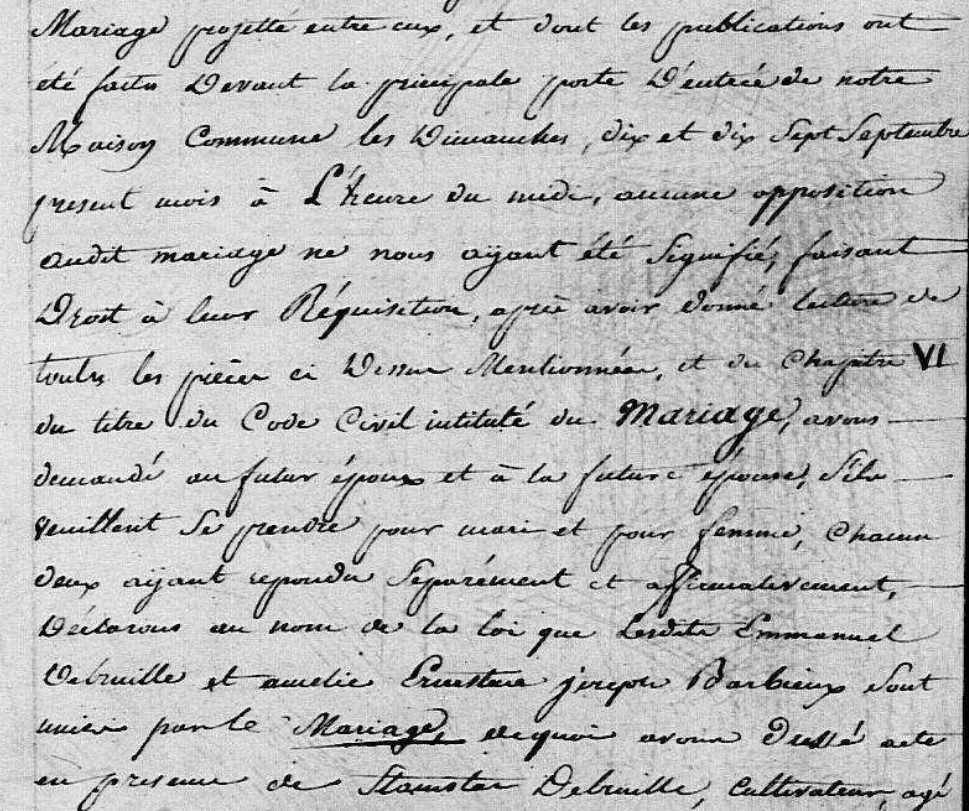 Mariage projetté entre eux, et dont les publications ont
été faites Devant la principale porte D'entrée de notre
Maison Commune les Dimanches, dix et dix Sept Septembre
present mois à L'heure du midi, aucune opposition
audit mariage ne nous ayant été Signifié, faisant
Droit à leur Réquisition, après avoir donné lecture de
toutes les pièces ci Dessus Mentionnées, et du Chapitre VI
du titre du Code Civil intitulé du Mariage, avons
demandé au futur époux et à la future épouse, S'ils
veuillent Se prendre pour mari et pour femme, Chacun
deux ayant repondu Séparément et affirmativement,
Déclarons au nom de la loi que Lesdits Emmanuel
Debruille et amelie Ernestine joseph Barbieux Sont
unies par le Mariage, de quoi avons Dressé acte
en presence de Stanislas Debruille, Cultivateur agé